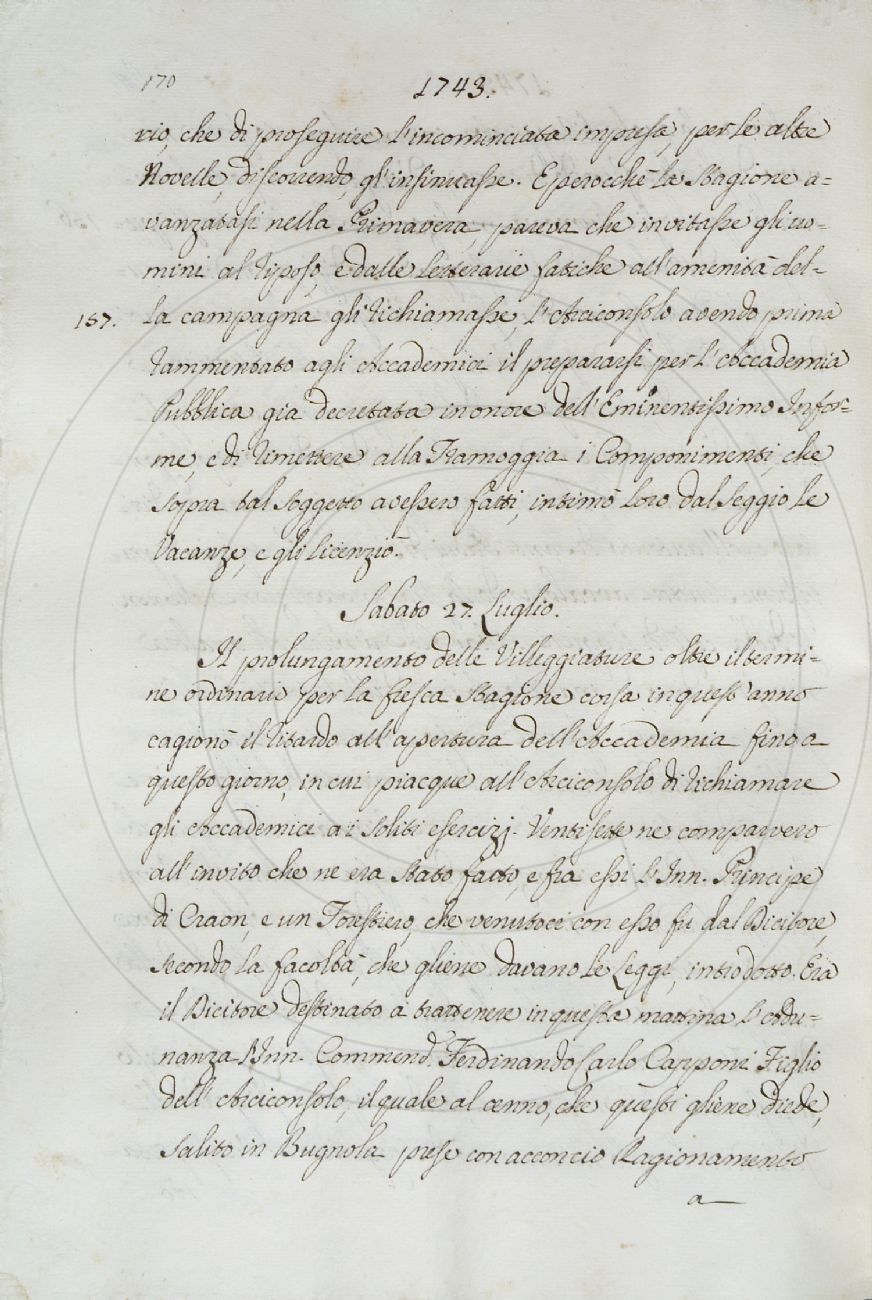 170
1743.
rio, che di proseguire l'incominciata impresa, per le altre
Novelle, discorrendo, gl'insinuasse. E perocchè la Stagione a=
vanzatasi nella Primavera, pareva che invitasse gli uo=
mini al riposo, e dalle letterarie fatiche all'amenità del=
157. la campagna gli richiamasse, l'Arciconsolo avendo prima
rammentato agli Accademici il prepararsi per l'Accademia
Pubblica già decretata in onore dell'Eminentissimo Infor=
me, e di rimettere alla Tramoggia i Componimenti, che
sopra tal soggetto avessero fatti, intimò loro dal Seggio le
Vacanze, e gli licenziò.
Sabato 27. Luglio.
Il prolungamento delle Villeggiature oltre il termi=
ne ordinario per la fresca Stagione corsa in quest'anno
cagionò il ritardo all'apertura dell'Accademia fino a
questo giorno, in cui piacque all'Arciconsolo di richiamare
gli Accademici ai soliti esercizj. Ventisette ne comparvero
all'invito che ne era stato fatto, e fra essi l'Inn. Principe
di Craon, e un Forestiero, che venutoci con esso fu dal Dicitore,
secondo la facoltà, che gliene davano le Leggi, introdotto. Era
il Dicitore destinato a trattenere in questa mattina l'Adu=
nanza l'Inn. Commend.e Ferdinando Carlo Capponi Figlio
dell'Arciconsolo, il quale al cenno, che questi gliene diede,
salito in Bugnola prese con acconcio Ragionamento
a